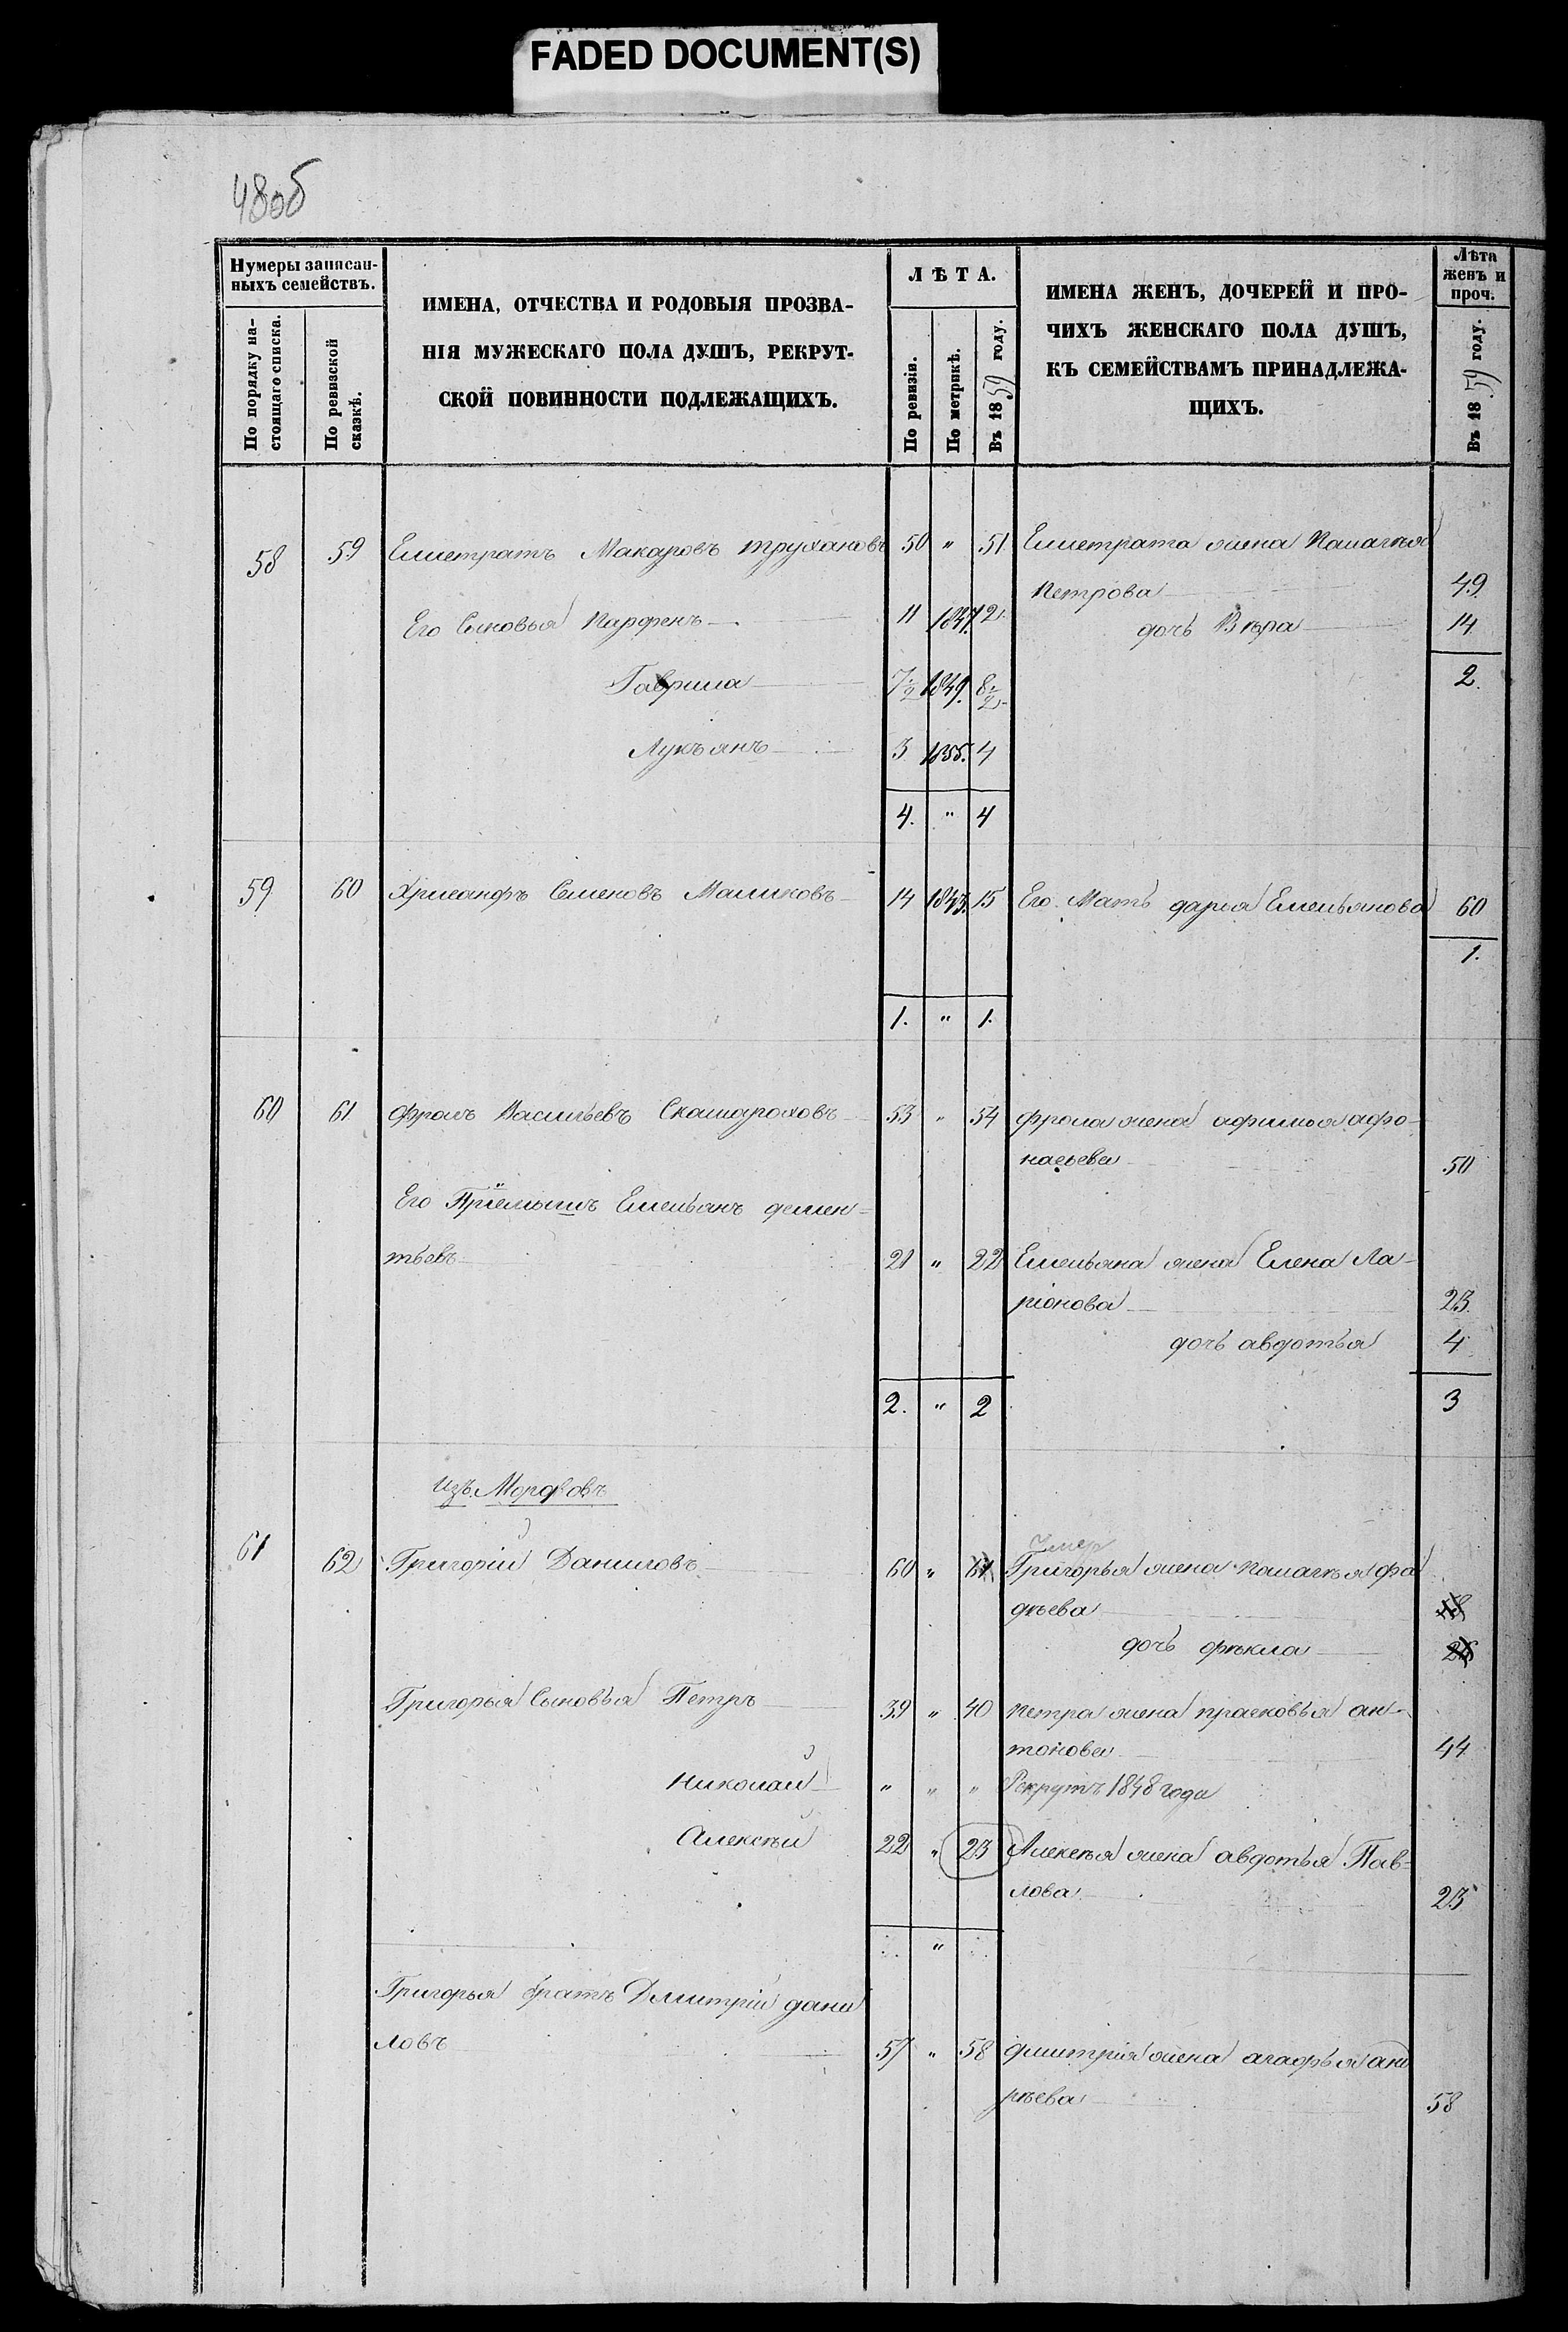 FADED DOCUMENT(S)
48об
Нумеры записан-
ныхъ семействъ.
По порядку на-
стоящаго списка.
По ревизской
сказкѣ.
ИМЕНА, ОТЧЕСТВА И РОДОВЫЯ ПРОЗВА-
НІЯ МУЖЕСКАГО ПОЛА ДУШЪ, РЕКРУТ-
СКОЙ ПОВИННОСТИ ПОДЛЕЖАЩИХЪ.
ЛѢТА.
По ревизіи.
По метрикѣ.
Въ 1859 году.
ИМЕНА ЖЕНЪ, ДОЧЕРЕЙ И ПРО-
ЧИХЪ ЖЕНСКАГО ПОЛА ДУШЪ,
КЪ СЕМЕЙСТВАМЪ ПРИНАДЛЕЖА-
ЩИХЪ.
Лѣта
женъ и
проч.
Въ 1859 году.
58 59 Елистратъ Макаровъ трухановъ 50 " 51 Елистрата жена Палагѣя
Петрова 49
Его Сыновья Парфенъ 11 1847. 12 дочь Вѣра 14
Гаврила 7½ 1849. 8½ 2.
Лукъянъ 3 1855. 4
4. " 4
59 60 Хрисанфъ Семеновъ Маликовъ 14 1843. 15 Его Мать дарья Емельянова 60
1.
1. " 1.
60 61 фролъ Васильевъ Скамароховъ 53 " 54 фрола жена афимья афо-
насьева 50
Его Пріёмышъ Емельянъ демен-
тьевъ 21 " 22 Емельяна жена Елена Ла-
ріонова 23.
дочь авдотья 4
2. " 2 3
изъ Мордвовъ
умер
61 62 Григорій Даниловъ 60 " 61 Григорья жена Палагѣя фа
дѣева 58
дочь фѣкла 26
Григорья Сыновья Петръ 39 " 40 Петра жена прасковья ан-
тонова 44
Николай " " " Рекрутъ 1848 года
Алексѣй 22 " 23 Алексѣя жена авдотья Пав-
лова 23
"
Григорья братъ Дмитрій дани
ловъ 57 " 58 дмитрія жена агафья анд
рѣева 58